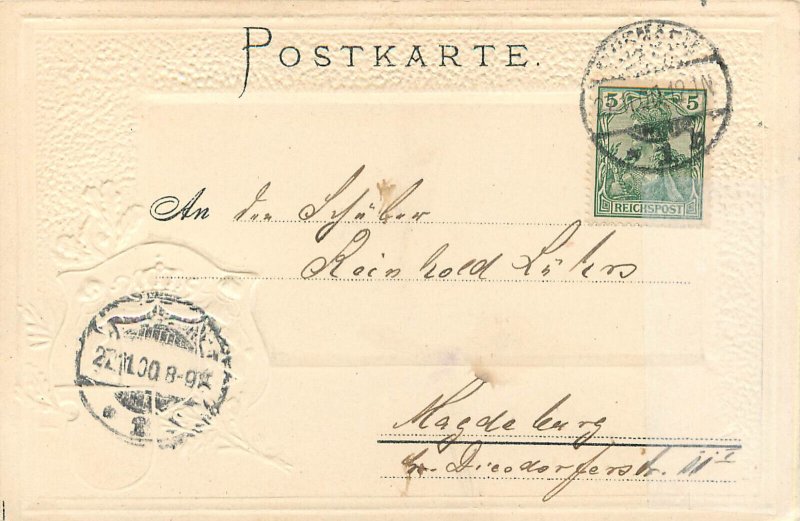 POSTKARTE.
5 5
REICHSPOST
An den Schüler
Reinhold Lührs
22.11.00 8-9
Magdeburg
gr. Diesdorferstr.